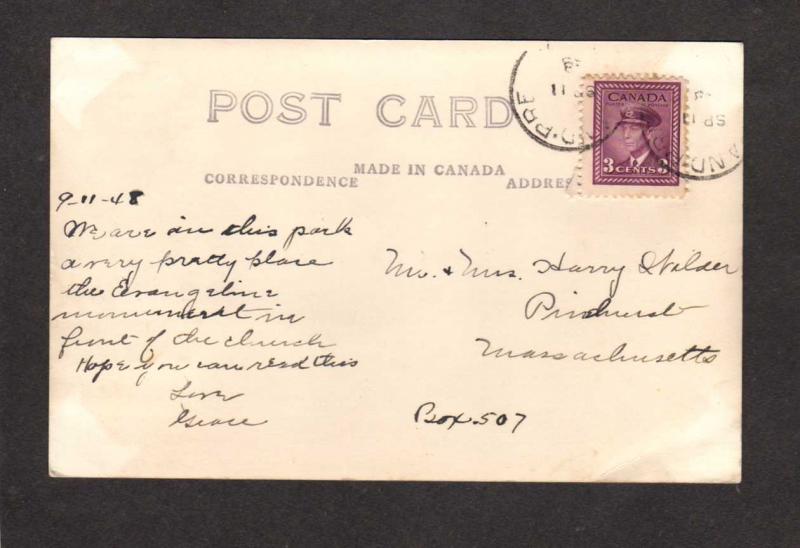 POST CARD
MADE IN CANADA
CORRESPONDENCE
ADDRES
CANADA
3 CENTS 3
SP 11
SP 11
ND·PRE
AND
9-11-48
We are in this park
a very pretty place
the Evangeline
monument in
front of the church
Hope you can read this
Love
Grace
Mr. & Mrs. Harry Wilder
Pinehurst
Massachusetts
Box 507